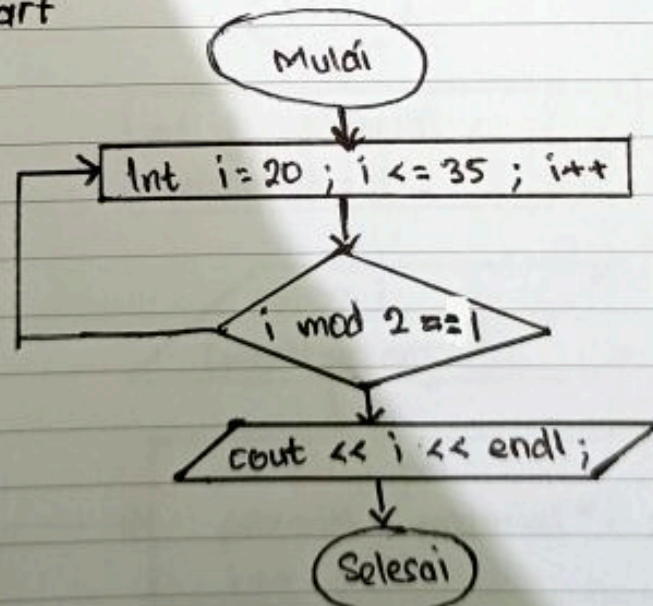 art
Mulai
Int i = 20 ; i <= 35 ; i++
i mod 2 == 1
cout << i << endl ;
Selesai